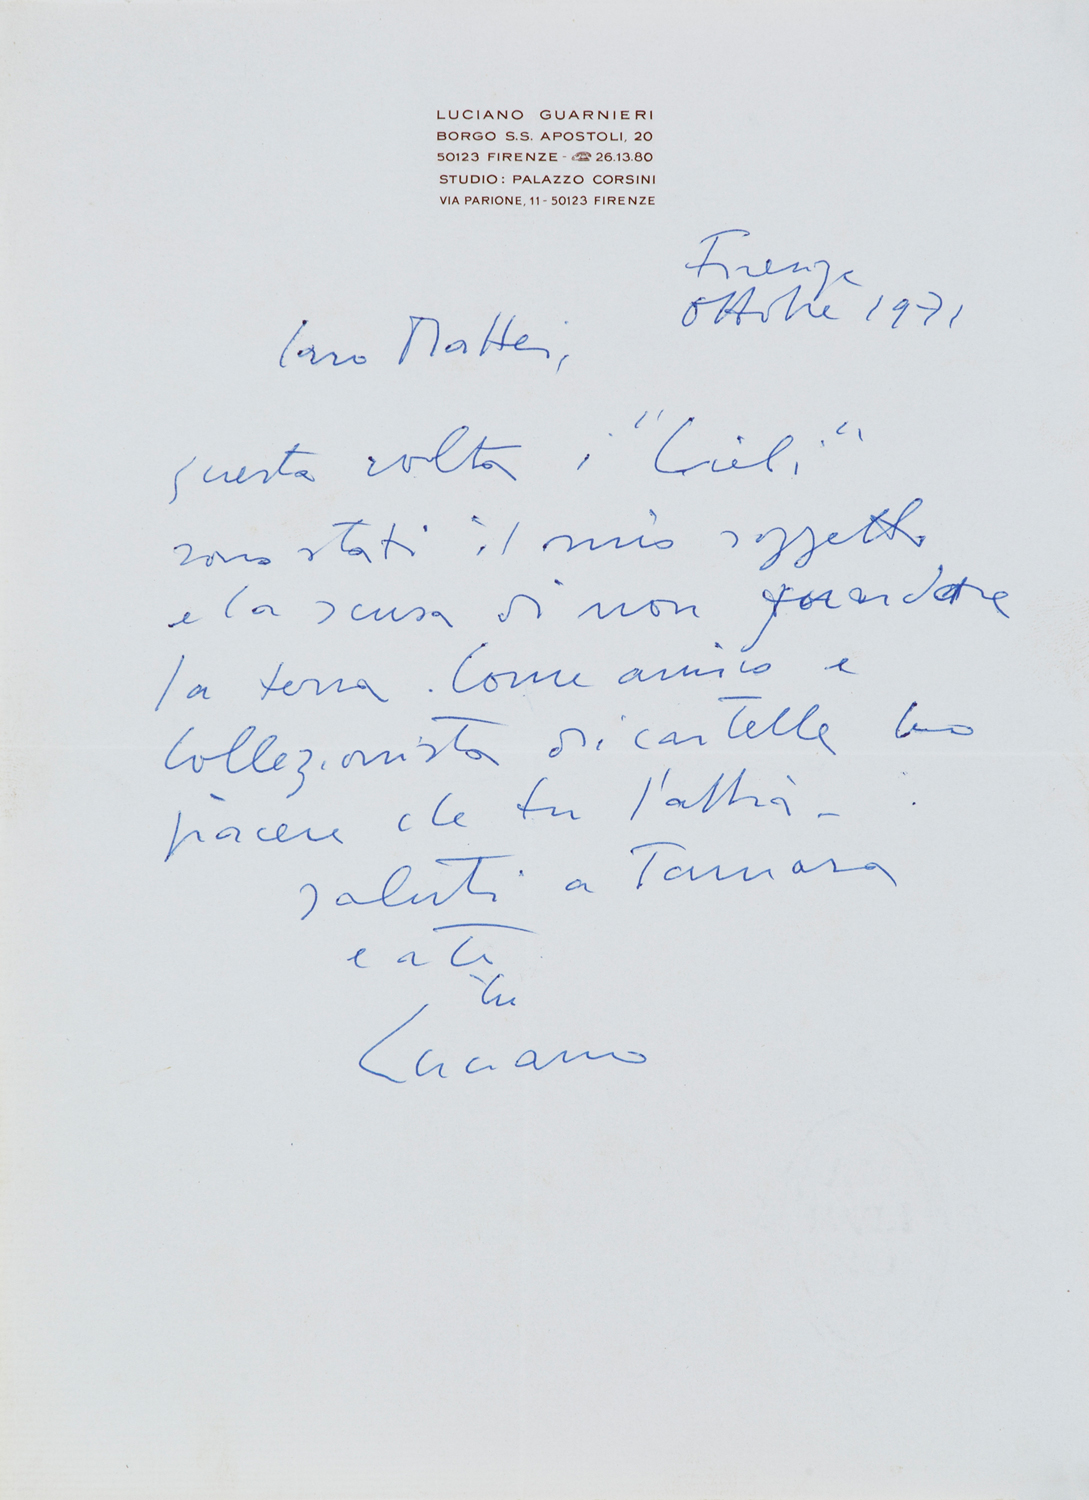 LUCIANO GUARNIERI
BORGO S.S. APOSTOLI, 20
50123 FIRENZE - ☎ 26.13.80
STUDIO: PALAZZO CORSINI
VIA PARIONE, 11 - 50123 FIRENZE
Firenze
ottobre 1971
Caro Mattei,
questa volta i "Cieli"
sono stati il mio soggetto
e la scusa di non guardare
la terra. Come amico e
Collezionista di cartelle ho
piacere che tu l'abbia -
saluti a Tamara
e a te
tu
Luciano